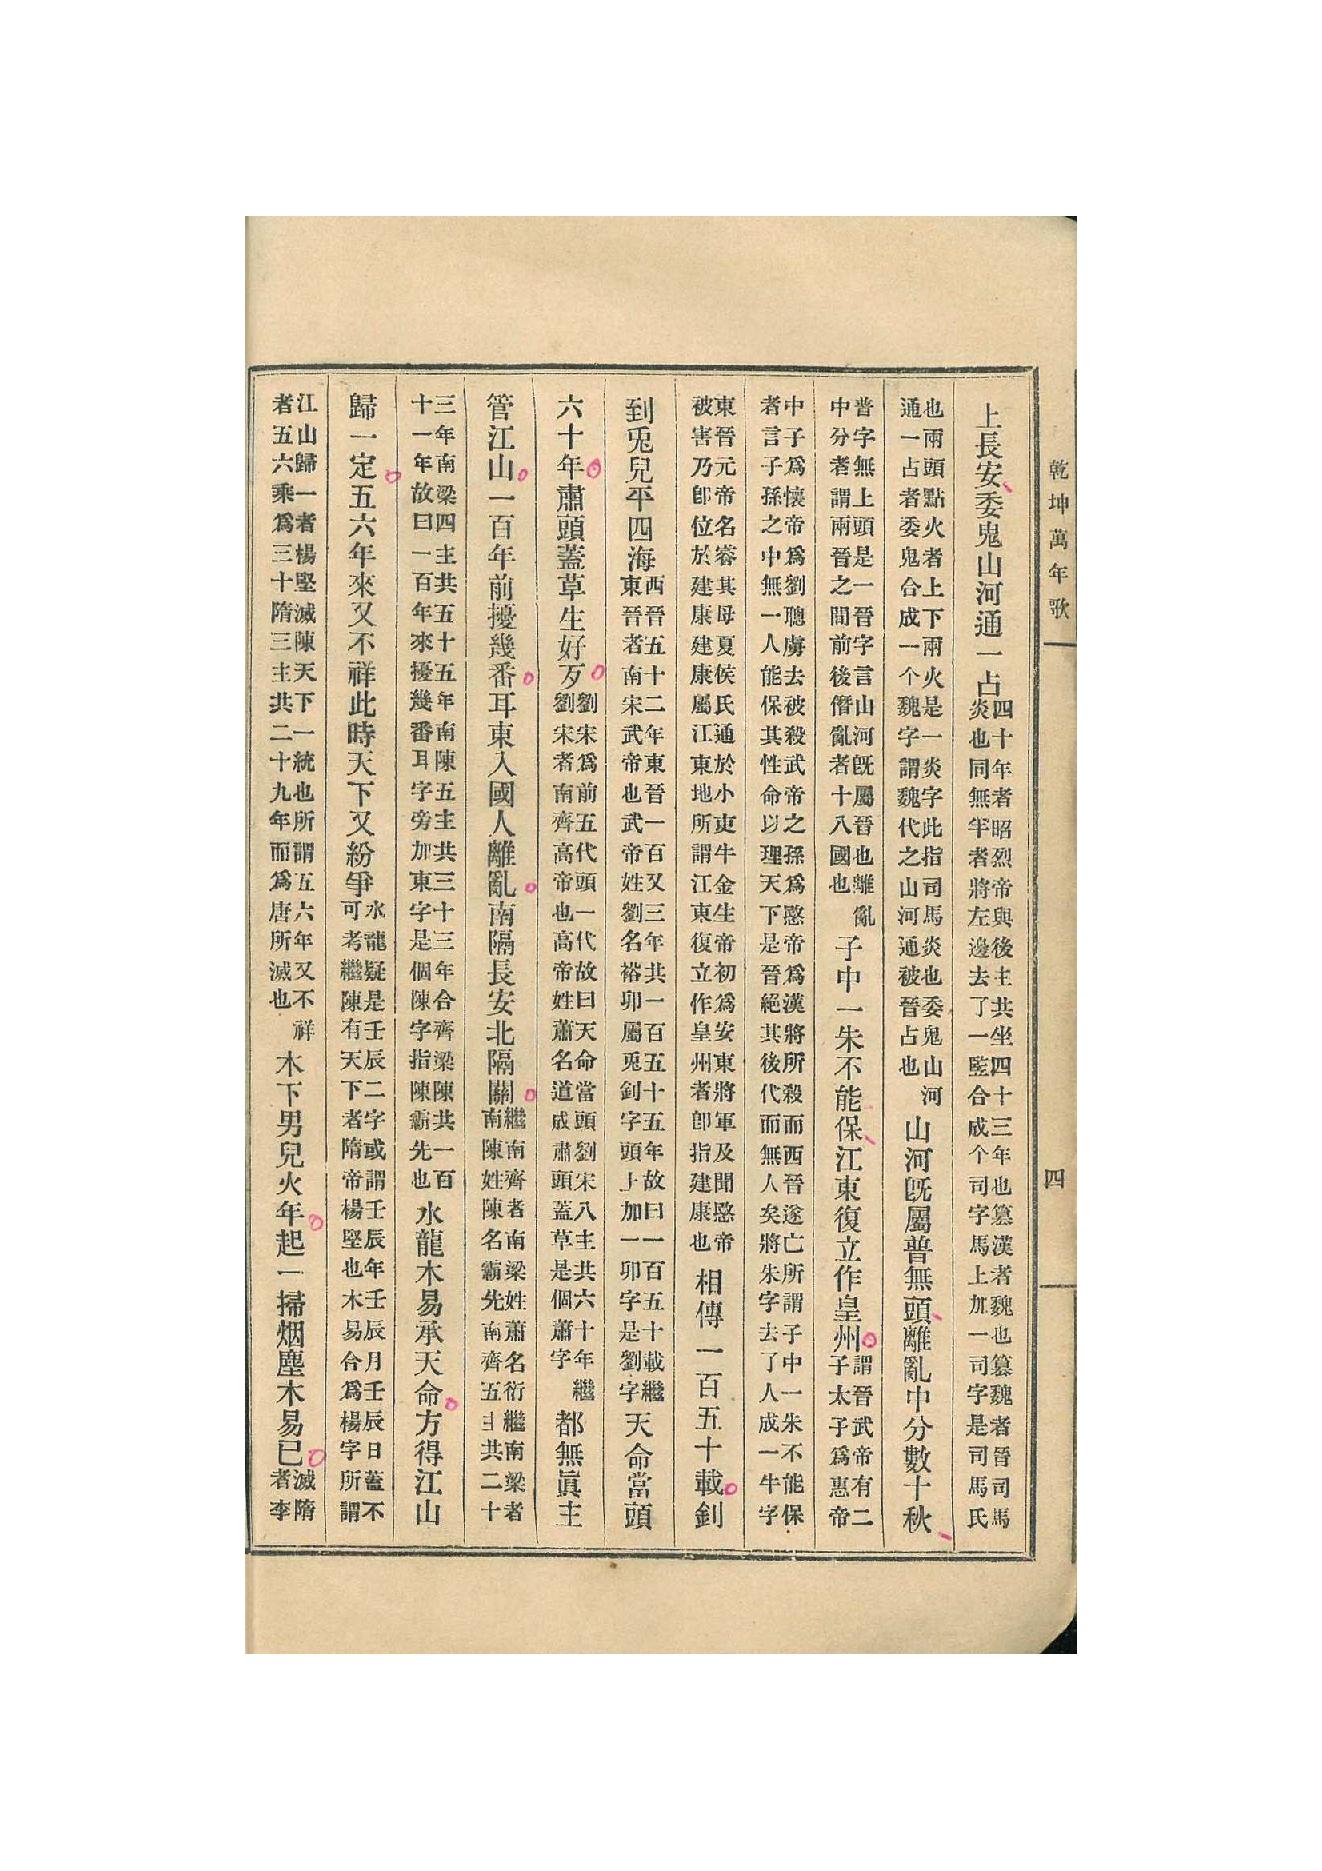 乾坤萬年歌
四
上長安委鬼山河通一占
四十年者昭烈帝與後主共坐四十三年也篡漢者魏也篡魏者晉司馬
炎也同無半者將左邊去了一監合成个司字馬上加一司字是司馬氏
也兩頭點火者上下兩火是一炎字此指司馬炎也委鬼山河
通一占者委鬼合成一个魏字謂魏代之山河通被晉占也
山河旣屬普無頭離亂中分數十秋
普字無上頭是一晉字言山河旣屬晉也離亂
中分者謂兩晉之間前後僭亂者十八國也
子中一朱不能保江東復立作皇州
謂晉武帝有二
子太子爲惠帝
中子爲懷帝爲劉聰虜去被殺武帝之孫爲愍帝爲漢將所殺而西晉遂亡所謂子中一朱不能保
者言子孫之中無一人能保其性命以理天下是晉絕其後代而無人矣將朱字去了人成一牛字
東晉元帝名睿其母夏侯氏通於小吏牛金生帝初爲安東將軍及聞愍帝
被害乃卽位於建康建康屬江東地所謂江東復立作皇州者卽指建康也
相傳一百五十載釗
到兎兒平四海
西晉五十二年東晉一百又三年共一百五十五年故曰一百五十載繼
東晉者南宋武帝也武帝姓劉名裕卯屬兎釗字頭上加一卯字是劉字
天命當頭
六十年肅頭蓋草生好歹
劉宋爲前五代頭一代故曰天命當頭劉宋八主共六十年繼
劉宋者南齊高帝也高帝姓蕭名道成肅頭蓋草是個蕭字
都無眞主
管江山一百年前擾幾番耳東入國人離亂南隔長安北隔關
繼南齊者南梁姓蕭名衍繼南梁者
南陳姓陳名霸先南齊五主共二十
三年南梁四主共五十五年南陳五主共三十三年合齊梁陳共一百
十一年故曰一百年來擾幾番耳字旁加東字是個陳字指陳霸先也
水龍木易承天命方得江山
歸一定五六年來又不祥此時天下又紛爭
水龍疑是壬辰二字或謂壬辰年壬辰月壬辰日蓋不
可考繼陳有天下者隋帝楊堅也木易合爲楊字所謂
江山歸一者楊堅滅陳天下一統也所謂五六年又不祥
者五六乘爲三十隋三主共二十九年而爲唐所滅也
木下男兒火年起一掃烟塵木易已
滅隋
者李